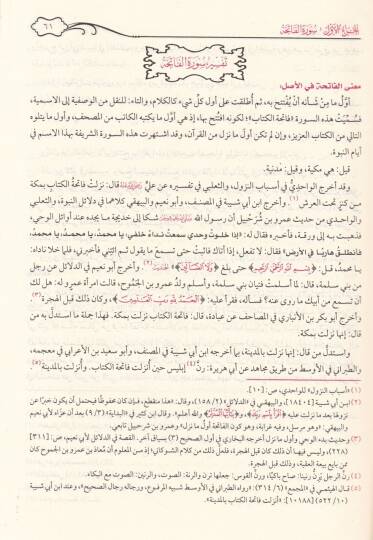 الجزء الأول: سورة الفاتحة
٦١
تفسير سورة الفاتحة
معنى الفاتحة في الأصل:
أوَّل ما مِنْ شأنه أنْ يُفْتتح به، ثم أُطلقت على أول كلِّ شيء كالكلام، والتاء: للنقل من الوصفية إلى الاسمية،
فسُمِّيَتْ هذه السورة «فاتحة الكتاب»؛ لكونه افتُتح بها، إذ هي أوَّل ما يكتبه الكاتب من المصحف، وأول ما يتلوه
التالي من الكتاب العزيز، وإن لم تكن أولَ ما نزل من القرآن، وقد اشتهرت هذه السورة الشريفة بهذا الاسم في
أيام النبوة.
قيل: هي مكية، وقيل: مدنية.
وقد أخرج الواحديُّ في أسباب النزول، والثعلبي في تفسيره عن عليٍّ قال: نزلتْ فاتحةُ الكتابِ بمكة
من كنزٍ تحت العرش(١). وأخرج ابن أبي شيبة في المصنف، وأبو نعيم والبيهقي كلاهما في دلائل النبوة، والثعلبي
والواحدي من حديث عمرو بن شُرَحْبيل أن رسول الله شكا إلى خديجة ما يجده عند أوائل الوحي،
فذهبت به إلى ورقة، فأخبره فقال له: «إذا خلوتُ وحدي سمعتُ نداءً خلفي: يا محمدُ، يا محمدُ، يا محمدُ،
فأنطلقُ هاربًا في الأرض» فقال: لا تفعل، إذا أتاك فاثبتْ حتى تسمعَ ما يقول ثم ائتني فأخبرني، فلما خلا ناداه:
يا محمدُ، قل: ﴿بسم الله الرحمن الرحيم﴾ حتى بلغ ﴿ولا الضالين﴾ الحديث(٢). وأخرج أبو نعيم في الدلائل عن رجل
من بني سلمة، قال: لما أسلمتْ فتيان بني سلمة، وأسلم ولدُ عمرو بن الجَمُوح، قالت امرأة عمرو له: هل لك
أن تسمع من أبيك ما روي عنه؟ فسأله، فقرأ عليه: ﴿الحمد لله رب العالمين﴾، وكان ذلك قبل الهجرة(٣).
وأخرج أبو بكر بن الأنباري في المصاحف عن عبادة، قال: فاتحة الكتاب نزلت بمكة. فهذا جملة ما استدلَّ به من
قال: إنها نزلت بمكة.
واستدلَّ من قال: إنها نزلت بالمدينة، بما أخرجه ابن أبي شيبة في المصنف، وأبو سعيد بن الأعرابي في معجمه،
والطبراني في الأوسط من طريق مجاهد عن أبي هريرة: رنَّ(٤) إبليس حين أُنزلت فاتحة الكتاب. وأُنزلت بالمدينة(٥)
(١) «أسباب النزول» للواحدي، ص: [١٠].
(٢) ابن أبي شيبة [١٨٤٠٤]، والبيهقي في «الدلائل» (٢/ ١٥٨)، وقال: «هذا منقطع، فإن كان محفوظًا فيحتمل أن يكون خبرًا عن
نزولها بعد ما نزلت عليه: ﴿اقرأ باسم ربك﴾، و﴿يا أيها المدثر﴾ والله أعلم». وقال ابن كثير في «البداية» (٩/٣) بعد أن عزاه لأبي نعيم
والبيهقي: «وهو مرسل، وفيه غرابة، وهو كون الفاتحة أول ما نزل» وعمرو بن شرحبيل تابعي.
(٣) وحديث بدء الوحي وأول ما نزل أخرجه البخاري في أول الصحيح (٣) بسياق آخر. القصة في الدلائل لأبي نعيم، ص: [٣١١]
(٢٢٨)، وليس فيها أن ذلك كان قبل الهجرة، فلعلَّ ذلك من كلام الشوكاني؛ إذ من المعلوم أن معاذ بن عمرو بن الجموح كان
ممن بايع بيعة العقبة، وذلك قبل الهجرة.
(٤) رنَّ الرجل يَرِنُّ رنينًا: صاح باكيًا، ورنَّ القوس: جعلها ترن، والرنة: الصوت، والرنين: الصوت مع البكاء.
(٥) قال الهيثمي في «المجمع» (٦/ ٣١٤): «رواه الطبراني في الأوسط شبيه المرفوع، ورجاله رجال الصحيح»، وعند ابن أبي شيبة
(١٠/ ٥٢٢) [١٠١٨٨]: «أنزلت فاتحة الكتاب بالمدينة».